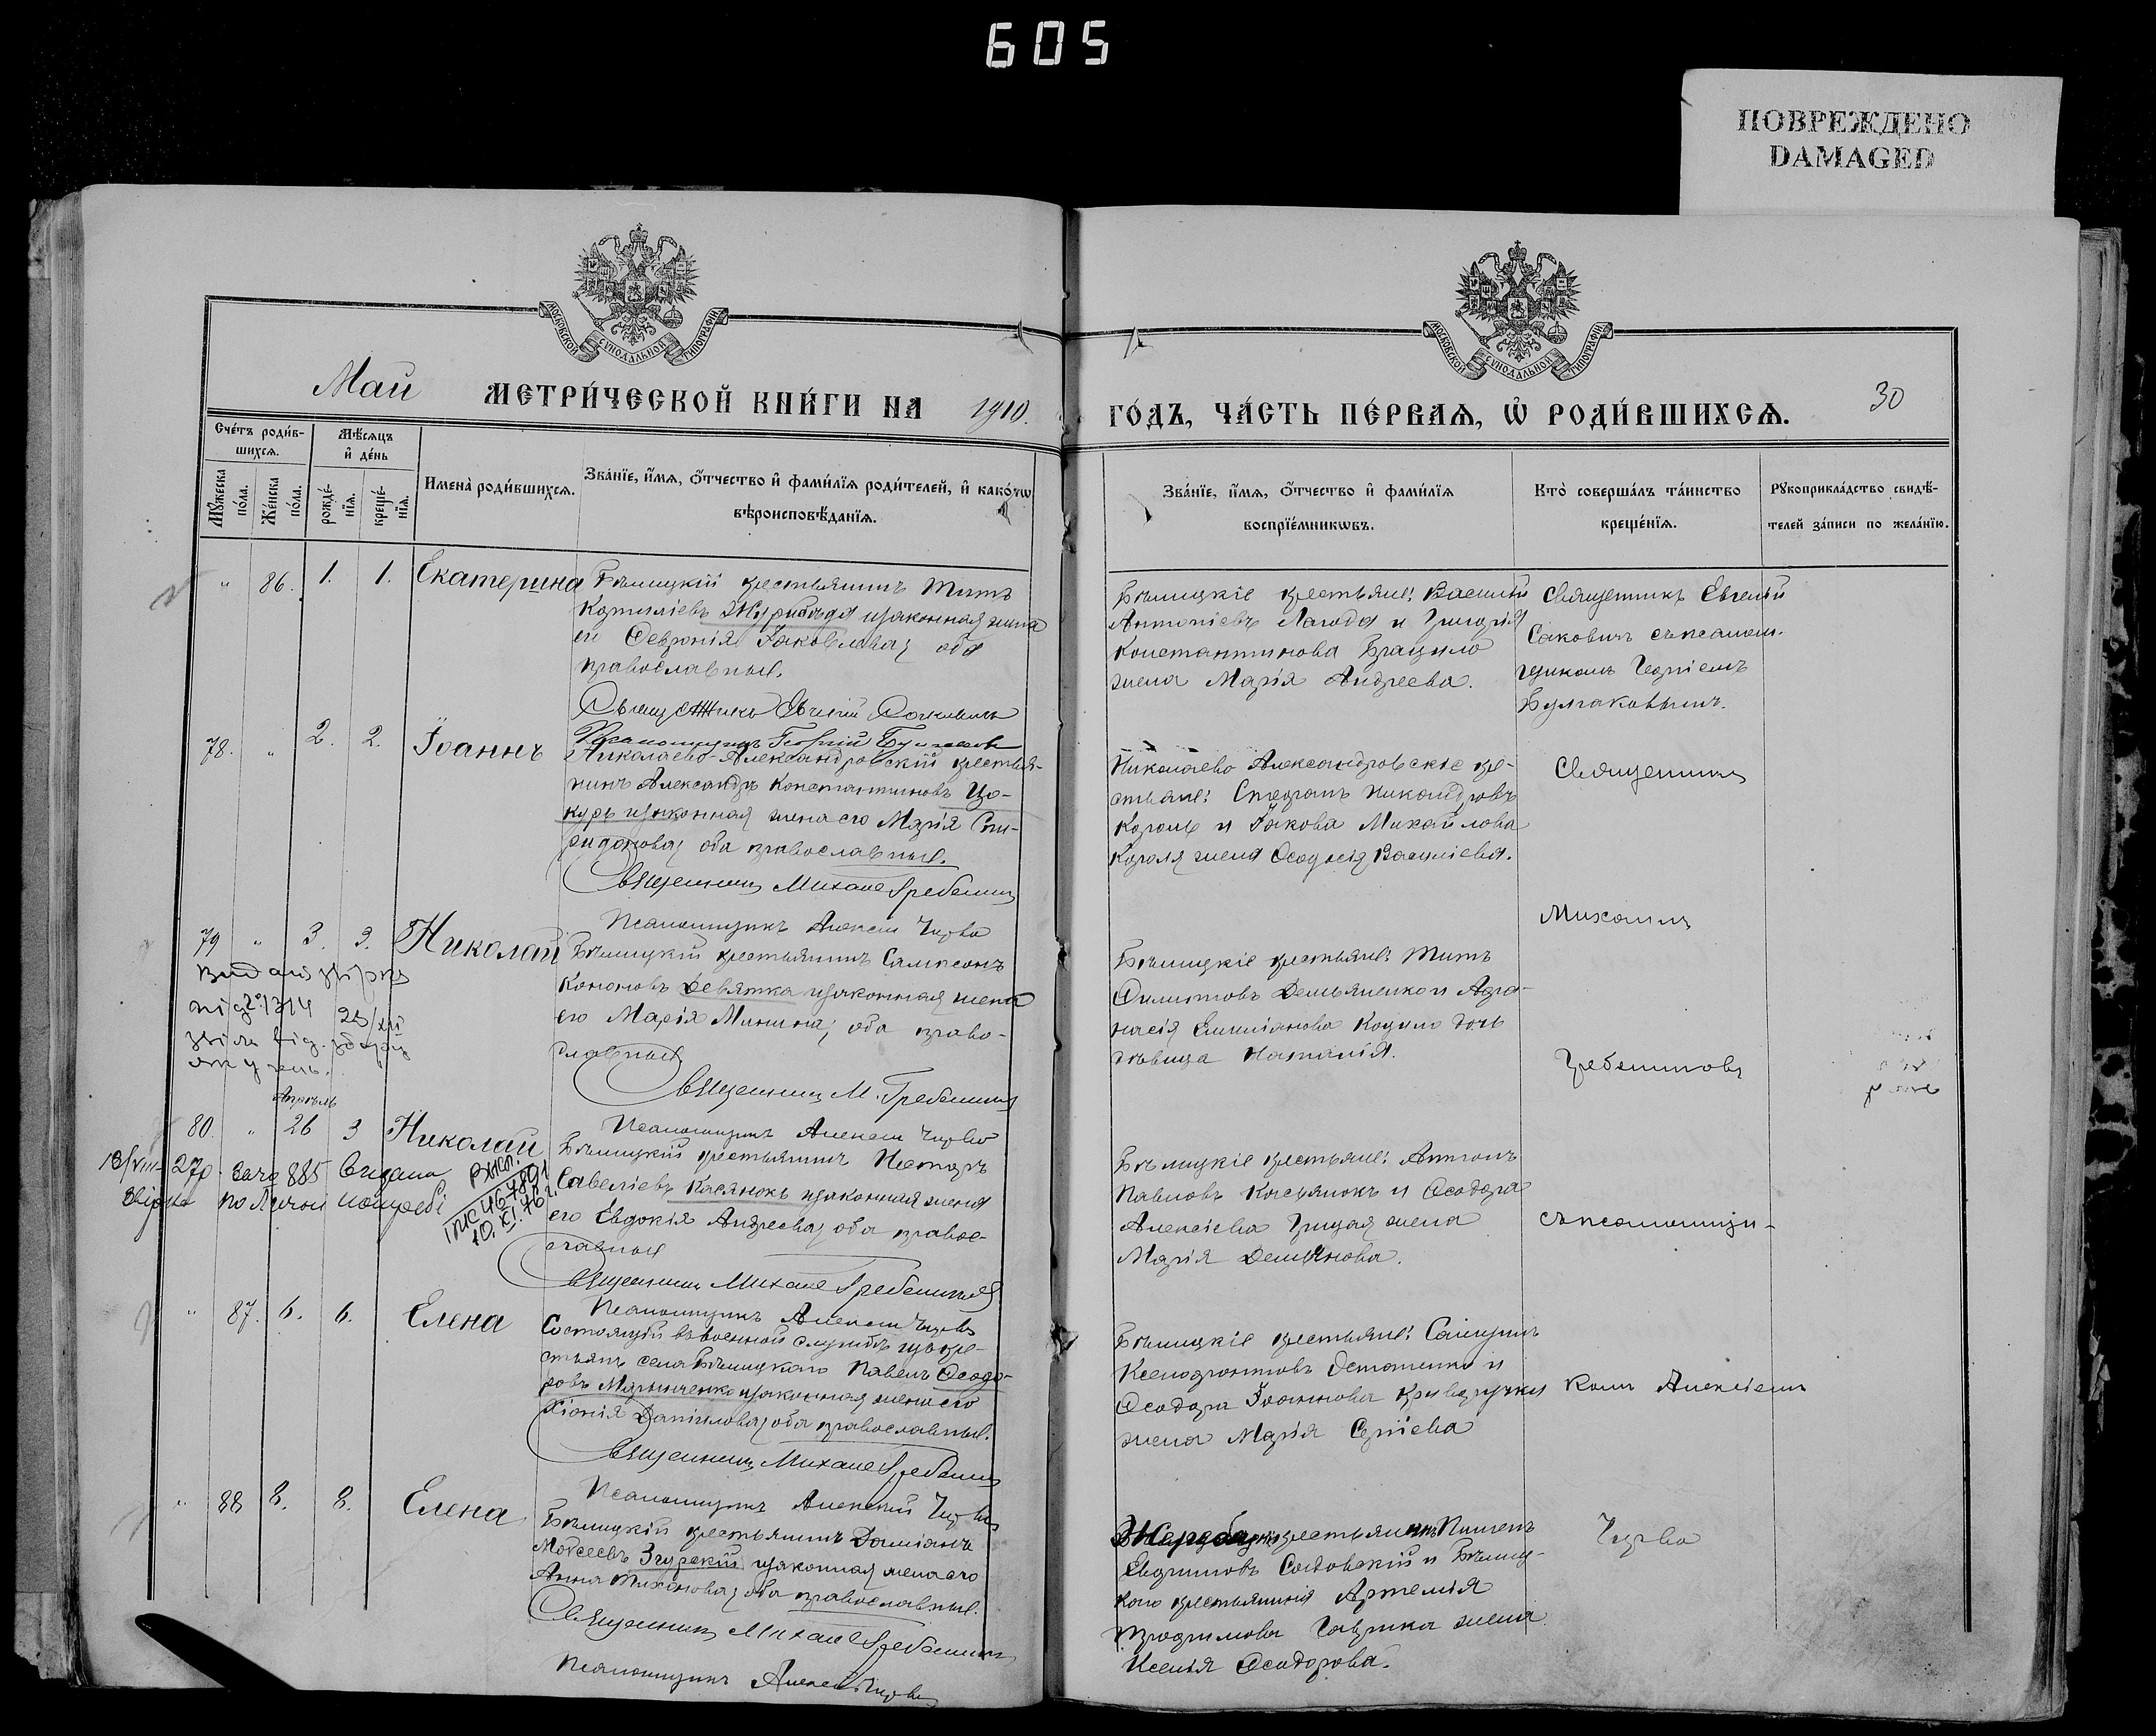 605
ПОВРЕЖДЕНО
DAMAGED
МОСКОВСКОЙ СѴНОДАЛЬНОЙ ТИПОГРАФІИ
МОСКОВСКОЙ СѴНОДАЛЬНОЙ ТИПОГРАФІИ
Май МЕТРИ́ЧЕСКОЙ КНИ́ГИ НА 1910.
ГО́ДЪ, ЧА́СТЬ ПЕ́РВАѦ, Ѡ҆ РОДИ́ВШИХСѦ.
30
Сче́тъ роди́в-
шихсѧ.
Мꙋ́жеска по́ла.
Же́нска по́ла.
Мѣ́сѧцъ
и҆ де́нь
рожде́-
нїѧ.
креще́-
нїѧ.
Имена̀ роди́вшихсѧ.
Зва́нїе, и҆́мѧ, ѻ҆́тчество и҆ фами́лїѧ роди́телей, и҆ како́гѡ
вѣроисповѣ́данїѧ.
Зва́нїе, и҆́мѧ, ѻ҆́тчество и҆ фами́лїѧ
воспрїе́мникѡвъ.
Кто̀ соверша́лъ та́инство
креще́нїѧ.
Рꙋкоприкла́дство свидѣ́-
телей за́писи по жела́нїю.
" 86. 1. 1. Екатерина
Бѣлицкій крестьянинъ Титъ
Корниліевъ Журибѣда и законная жена
ег Февронія Іаковлева, оба
православные.
Священникъ Евгеній Саковичъ
Псаломщикъ Георгій Булгаковъ
Бѣлицкіе крестьяне: Василій
Антоніевъ Лагода и Григорія
Константинова Брацило
жена Марія Андреева.
Священникъ Евгеній
Саковичъ съ псалом-
щикомъ Георгіемъ
Булгаковымъ.
78. " 2. 2. Іоаннъ
Николаево-Александровскій крестья-
нинъ Александръ Константиновъ Цо-
коръ и законная жена его Марія Спи-
ридонова, оба православные.
Священникъ Михаилъ Гребенниковъ
Псаломщикъ Алексій Чирва
Николаево Александровскіе кре-
стьяне: Стефанъ Никандровъ
Король и Іакова Михайлова
Короля жена Феодосія Василіева.
Священникъ
79 " 3. 3. Николай
Бѣлицкій крестьянинъ Сампсонъ
Кононовъ Девятка и законная жена
его Марія Минина, оба право-
славные
Священникъ М. Гребенниковъ
Псаломщикъ Алексій Чирва
Бѣлицкіе крестьяне: Титъ
Филиповъ Демьяненко и Афа-
насія Емиліанова Коцило дочь
дѣвица Наталія.
Михаилъ
Гребенниковъ
Апрѣль
80. " 26 3 Николай
Видана
по
ПИС 467891
10.XI.76 г.
Бѣлицкій крестьянинъ Несторъ
Савеліевъ Касянокъ и законная жена
его Евдокія Андреева, оба правос-
лавные
Священникъ Михаилъ Гребенниковъ
Псаломщикъ Алексій Чирва
Бѣлицкіе крестьяне: Антонъ
Павловъ Касьянокъ и Феодора
Алексіева Грицая жена
Марія Демьянова.
съ псаломщи-
" 87. 6. 6. Елена
Состоящій въ военной службѣ изъ кре-
стьянъ села Бѣлицкаго Павелъ Феодо-
ровъ Мартыненко и законная жена его
Хіонія Даніилова, оба православные.
Священникъ Михаилъ Гребенниковъ
Псаломщикъ Алексій Чирва
Бѣлицкіе крестьяне:
Ксенофонтовъ Остапенко и
Феодора Іоаннова Криворучки
жена Марія Сергіева
комъ Алексіемъ
" 88 8. 8. Елена
Бѣлицкій крестьянинъ Даміанъ
Моѵсеевъ Згурскій и законная жена его
Анна Тихонова, оба православные.
Священникъ Михаилъ Гребенниковъ
Псаломщикъ Алексій Чирва
крестьянинъ Пименъ
Евфимовъ Садовскій и Бѣлиц-
каго крестьянина Артемія
Трофимова Гаврика жена
Ксенія Феодорова.
Чирва